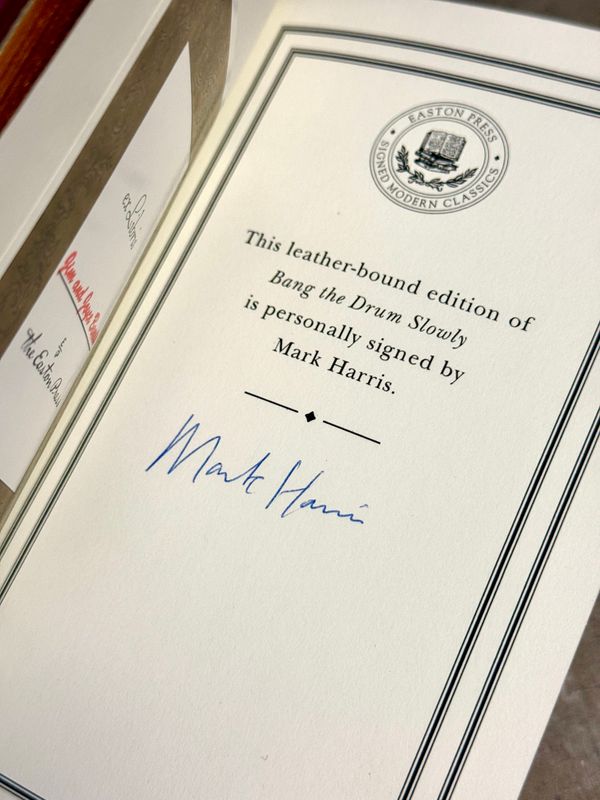 EASTON PRESS
SIGNED MODERN CLASSICS
This leather-bound edition of
Bang the Drum Slowly
is personally signed by
Mark Harris.
Mark Harris
editions
and
&
the Easton